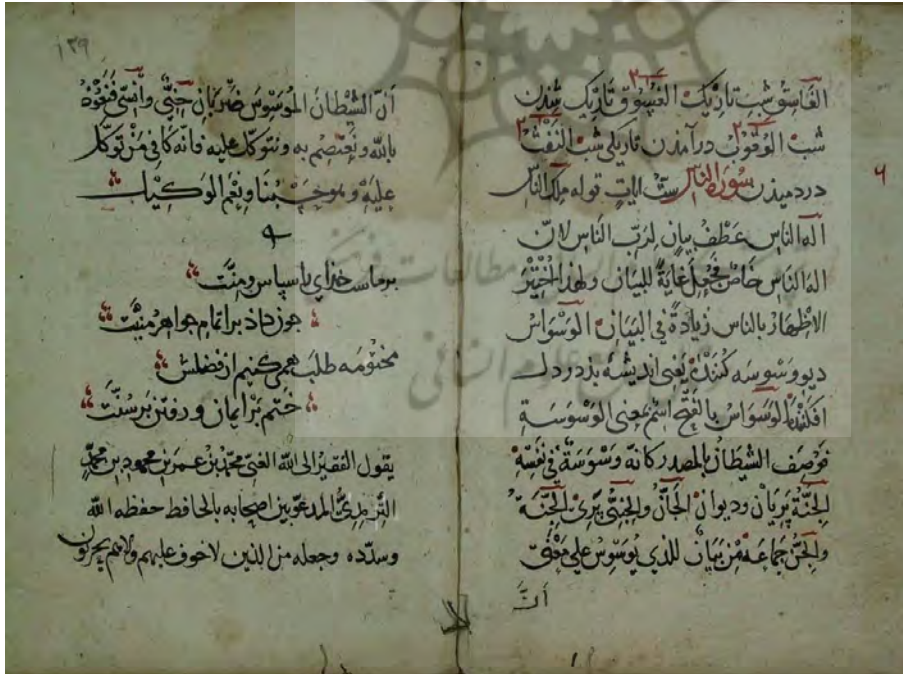 الغاسق شب تاریک الغسوق تاریک شدن
شب الوقوب درآمدن تاریکی شب النفث
دردمیذن سورة الناس ست ایات قوله ملک الناس
اله الناس عطف بیان لرب الناس لانّ
اله الناس خاصّ فجعل غایة للبیان ولهذا اختیر
الاظهار بالناس زیادة فی البیان الوسواس
دیو وسوسه کننده یعنی اندیشهٔ بد در دل
افکننده الوسواس بالفتح اسم بمعنی الوسوسة
فوصف الشیطان بالمصدر کانّه وسوسة فی نفسه
الجنّة پریان ودیوان الجانّ والجنّی پری الجنّة
والجنّ جماعة من بیان للذی یوسوس علی معنی
انّ
۱۳۹
انّ الشیطان الموسوس ضربان جنّی وانسی فنعوذ
بالله ونعتصم به ونتوکّل علیه فانه کافی من توکّل
علیه وهو حسبنا ونعم الوکیل
برماست خذای را سپاس ومنّت
چون داذ بر اتمام جواهر منیّت
مختومه طلب همی کنیم از فضلش
ختم بر ایمان ورفتن بر سنّت
یقول الفقیر الی الله الغنی محمّد بن عمر بن محمود بن محمّد
المدعوّ بین اصحابه بالحافظ حفظه الله
وسدّده وجعله من الذین لاخوف علیهم ولاهم یحزنون